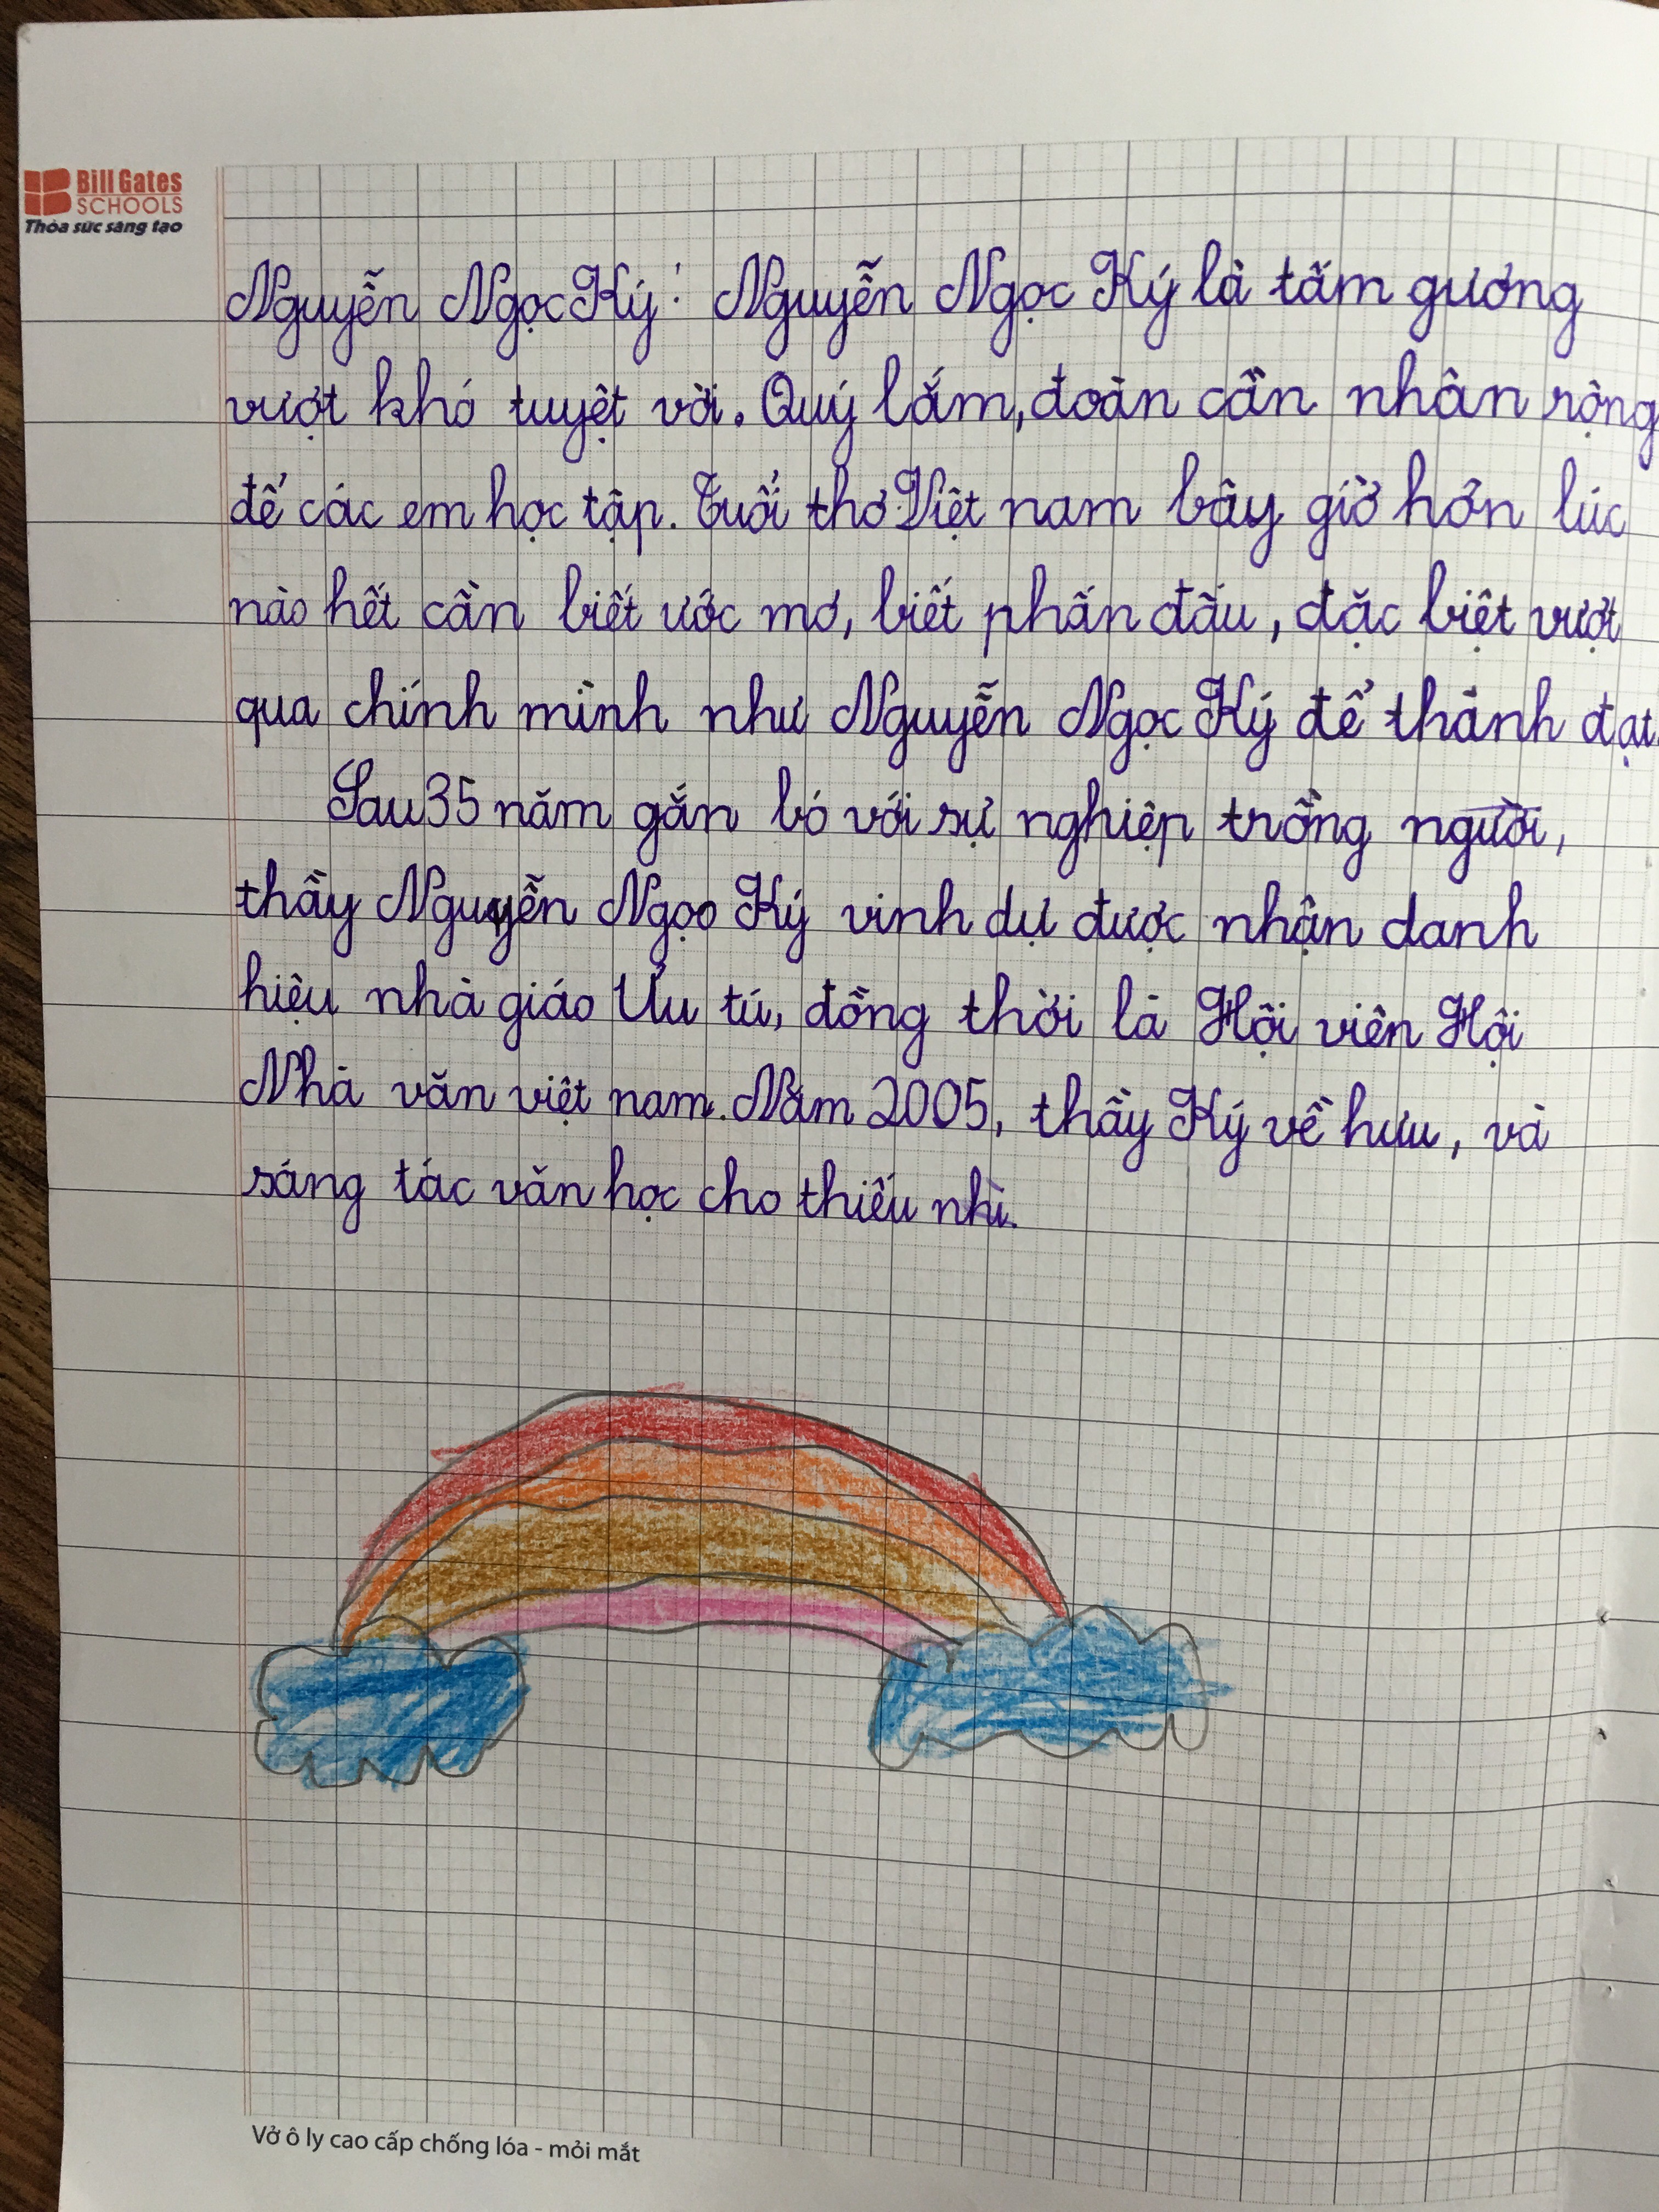 Bill Gates
SCHOOLS
Thỏa sức sáng tạo
Nguyễn Ngọc Ký: Nguyễn Ngọc Ký là tấm gương
vượt khó tuyệt vời. Quý lắm, đoàn cần nhân rộng
để các em học tập. Tuổi thơ Việt nam bây giờ hơn lúc
nào hết cần biết ước mơ, biết phấn đấu, đặc biệt vượt
qua chính mình như Nguyễn Ngọc Ký để thành đạt.
Sau 35 năm gắn bó với sự nghiệp trồng người,
thầy Nguyễn Ngọc Ký vinh dự được nhận danh
hiệu nhà giáo Ưu tú, đồng thời là Hội viên Hội
Nhà văn việt nam. Năm 2005, thầy Ký về hưu, và
sáng tác văn học cho thiếu nhi.
Vở ô ly cao cấp chống lóa - mỏi mắt